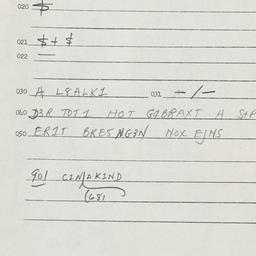 020 $
021 $ + $
022 —
030 A L8ALK1 032 — / —
040 D3R TOT1 HOT G1BRAXT A
050 ER1T BRESNG3N NOX EJNS
901 C1N1AKIND
(681